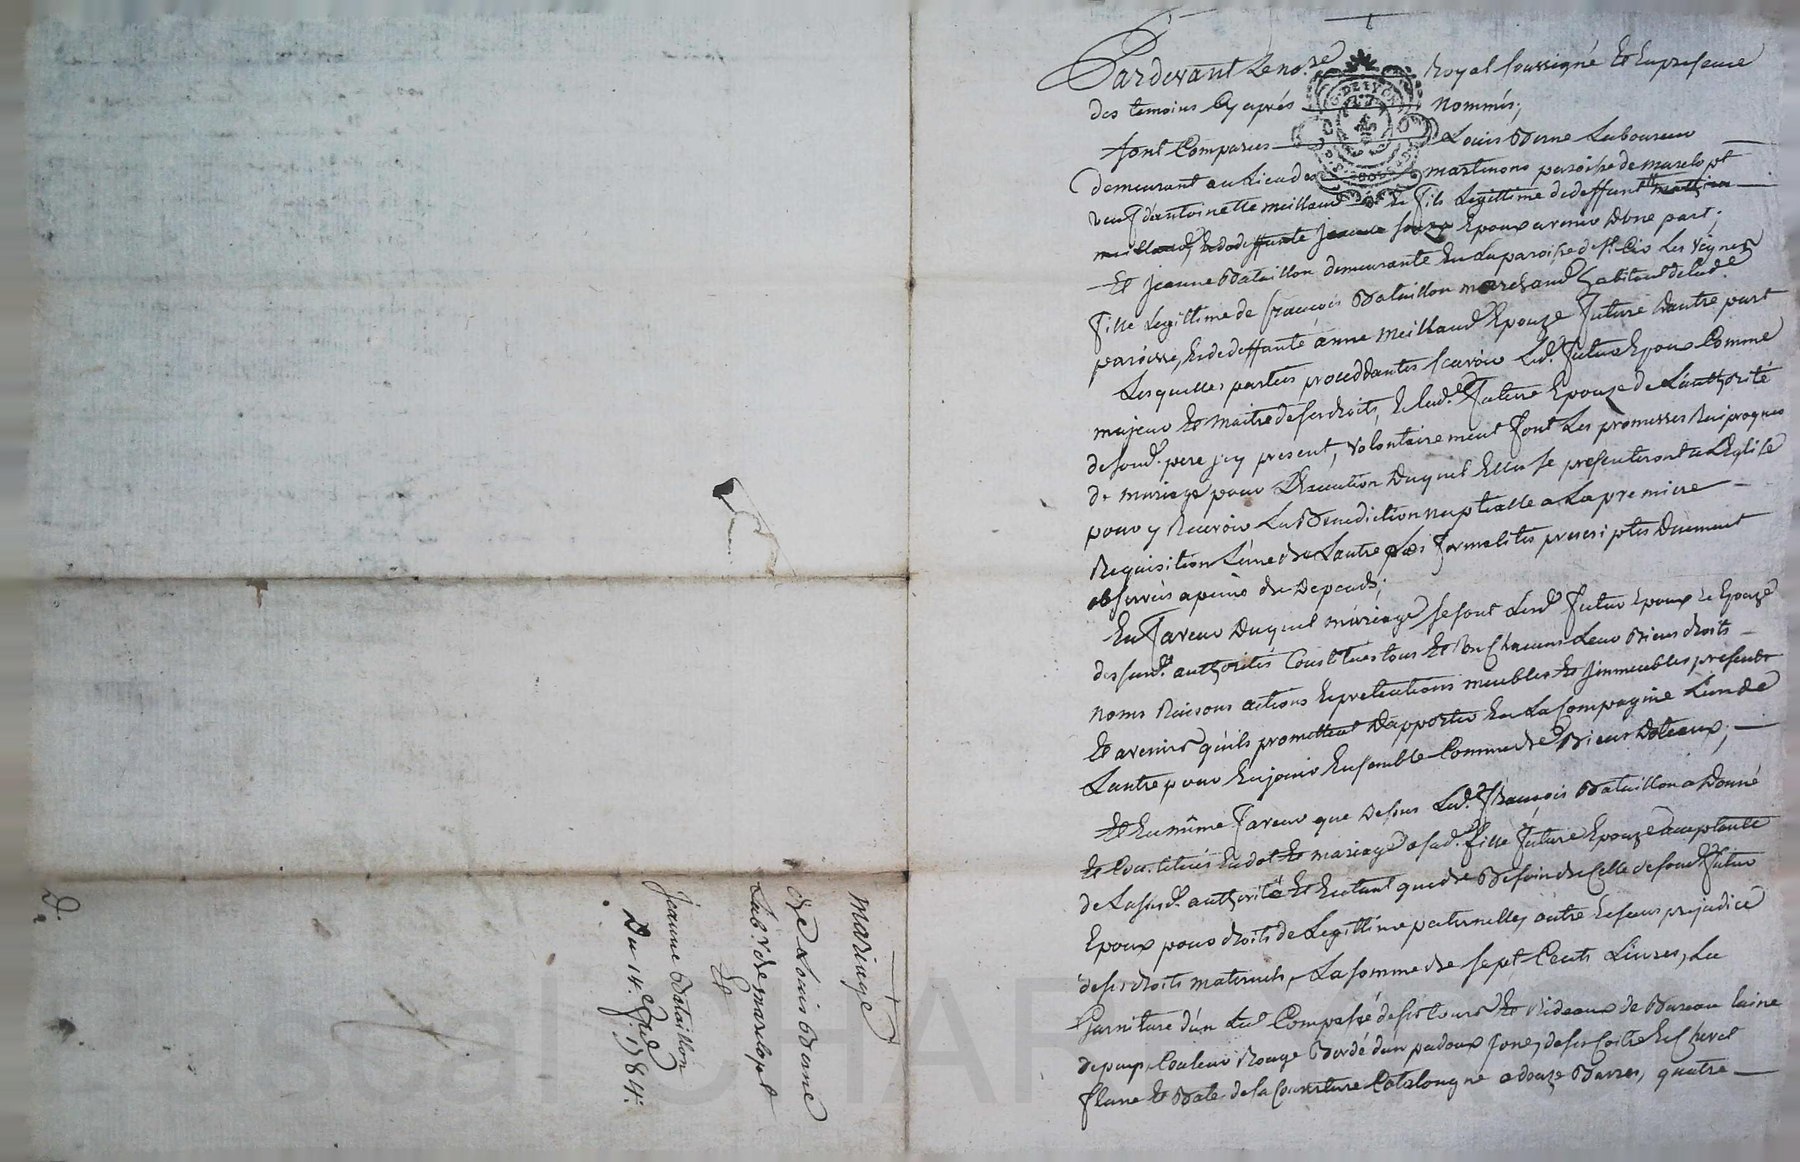 Pardevant Le no.re Royal soussigné Et En presence
des temoins Cy aprés Nommés;
G. DE LYON
sont Comparus Louis Berne Laboureur
demeurant au Lieu des martinons paroisse de marclopt
veuf d'antoinette meillaud Et fils Legittime de deffunt mathieu
Et de deffunte jeanne Epoux avenir D'une part;
Et jeanne Bataillon demeurante En La paroisse de St Cir Les Vignes
fille Legittime de françois Bataillon marchand habitant de lad.e
paroisse, Et de deffunte anne meillaud Epouze future D'autre part
Lesquelles parties procedantes scavoir Led. futur Epoux Comme
majeur Et maitre de ses droits, Et lad.e future Epouze de L'authorité
de sond. pere jcy present, volontairement font Les promesses Reciproques
de mariage pour L'Execution Duquel Elles se presenteront a L'Eglise
pour y Recevoir La Benediction nuptialle a La premiere
Requisition L'une de L'autre Les formalités prescriptes Duement
observées apeine de Depends;
En faveur Duquel mariage se sont Lesd. futur Epoux Et Epouze
des susd. authorités Constitués tous Et Un Chacuns Leur Biens droits
noms Raisons actions Et pretentions meubles Et jmmeubles presents
Et avenirs qu'ils promettent D'apporter En La Compagnie L'un de
L'autre pour En jouir Ensemble Comme de Biens Doteaux;
Et En même faveur que Dessus Led. françois Bataillon a Donné
Et Constitué En dot Et mariage a sad. fille future Epouze acceptante
de La susd. authorité Et En tant que de Besoin de Celle de sond. futur
Epoux pour droits de Legittime paternelle, outre Et sans prejudice
de ses droits maternels, La somme de sept Cents Livres, La
Garniture d'un Lit Composé de ses tours Et Rideaux de Bureau laine
de pays, Couleur Rouge Bordé d'un padoux jone, de ses Coitre Et Chevet
plume Et Bale de sa Couverture Catalougne a douze Barres, quatre
mariage
de Louis Berne
Lab.r de marclopt
Et
jeanne Bataillon
Du 14. 1784.
D.